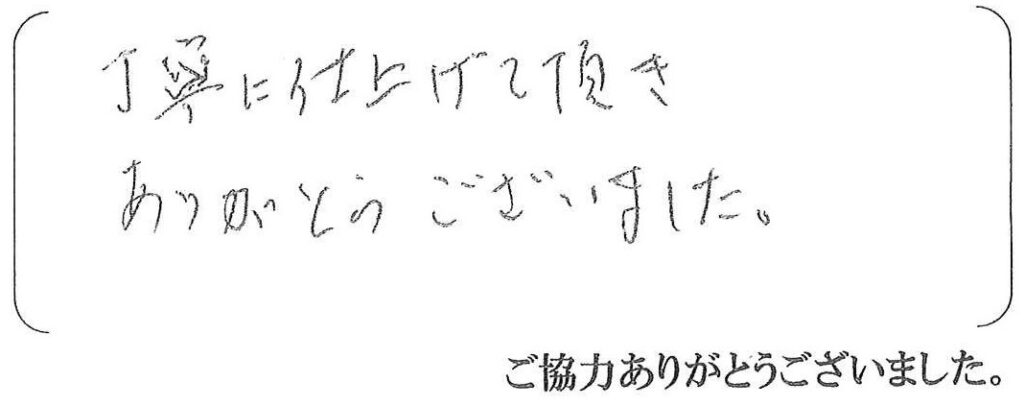 丁寧に仕上げて頂き
ありがとうございました。
ご協力ありがとうございました。